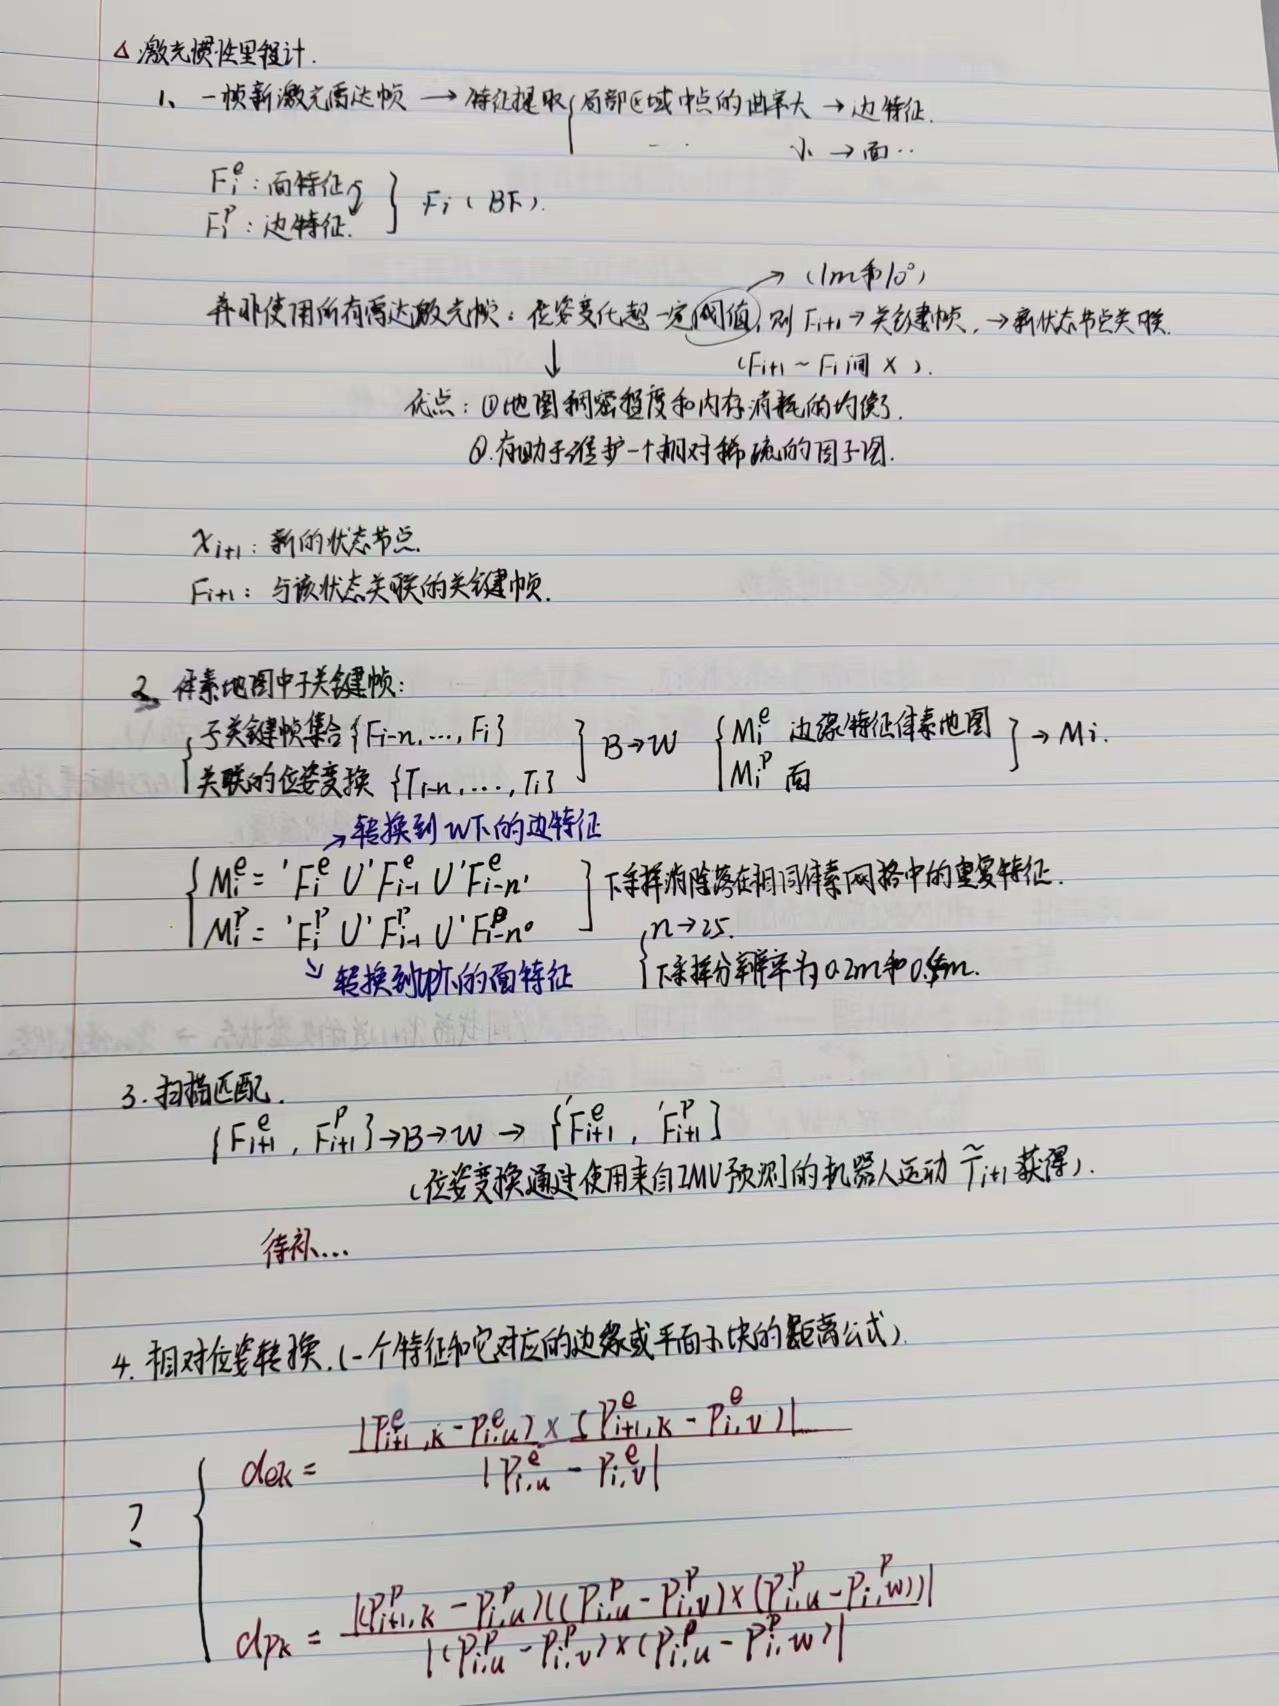 △ 激光惯性里程计.
1、一帧新激光雷达帧 → 特征提取 { 局部区域中点的曲率大 → 边特征.
小 → 面 ··
Fᵢᵉ : 面特征
Fᵢᵖ : 边特征. } Fᵢ ( BF ).
→ (1m和10°)
并非使用所有雷达激光帧: 位姿变化超一定阈值, 则 Fᵢ₊₁ → 关键帧, → 新状态节点关联.
(Fᵢ₊₁ ~ Fᵢ间 ×).
↓
优点: ①地图稠密程度和内存消耗的均衡.
②.有助于维护一个相对稀疏的因子图.
xᵢ₊₁ : 新的状态节点.
Fᵢ₊₁ : 与该状态关联的关键帧.
2. 体素地图中子关键帧:
{ 子关键帧集合 {Fᵢ₋ₙ, ..., Fᵢ} ] B→W { Mᵢᵉ 边缘特征体素地图 ] → Mᵢ.
关联的位姿变换 {Tᵢ₋ₙ, ..., Tᵢ} Mᵢᵖ 面
→ 转换到W下的边特征
{ Mᵢᵉ = 'Fᵢᵉ ∪ 'Fᵢ₋₁ᵉ ∪ 'Fᵢ₋ₙᵉ. ] 下采样消除落在相同体素网格中的重复特征.
Mᵢᵖ = 'Fᵢᵖ ∪ 'Fᵢ₋₁ᵖ ∪ 'Fᵢ₋ₙᵖ. { n → 25.
↘ 转换到W下的面特征 下采样分辨率为0.2m和0.4m.
3. 扫描匹配.
{Fᵢ₊₁ᵉ , Fᵢ₊₁ᵖ} → B → W → {'Fᵢ₊₁ᵉ , 'Fᵢ₊₁ᵖ}
(位姿变换通过使用来自IMU预测的机器人运动 T̃ᵢ₊₁ 获得).
待补...
4. 相对位姿转换. (一个特征和它对应的边缘或平面小块的距离公式).
? { dek = |(Pᵉi+1,k - Pᵉi,u) × (Pᵉi+1,k - Pᵉi,v)| / |Pᵉi,u - Pᵉi,v|
dpk = |(Pᵖi+1,k - Pᵖi,u)((Pᵖi,u - Pᵖi,v) × (Pᵖi,u - Pᵖi,w))| / |(Pᵖi,u - Pᵖi,v) × (Pᵖi,u - Pᵖi,w)|